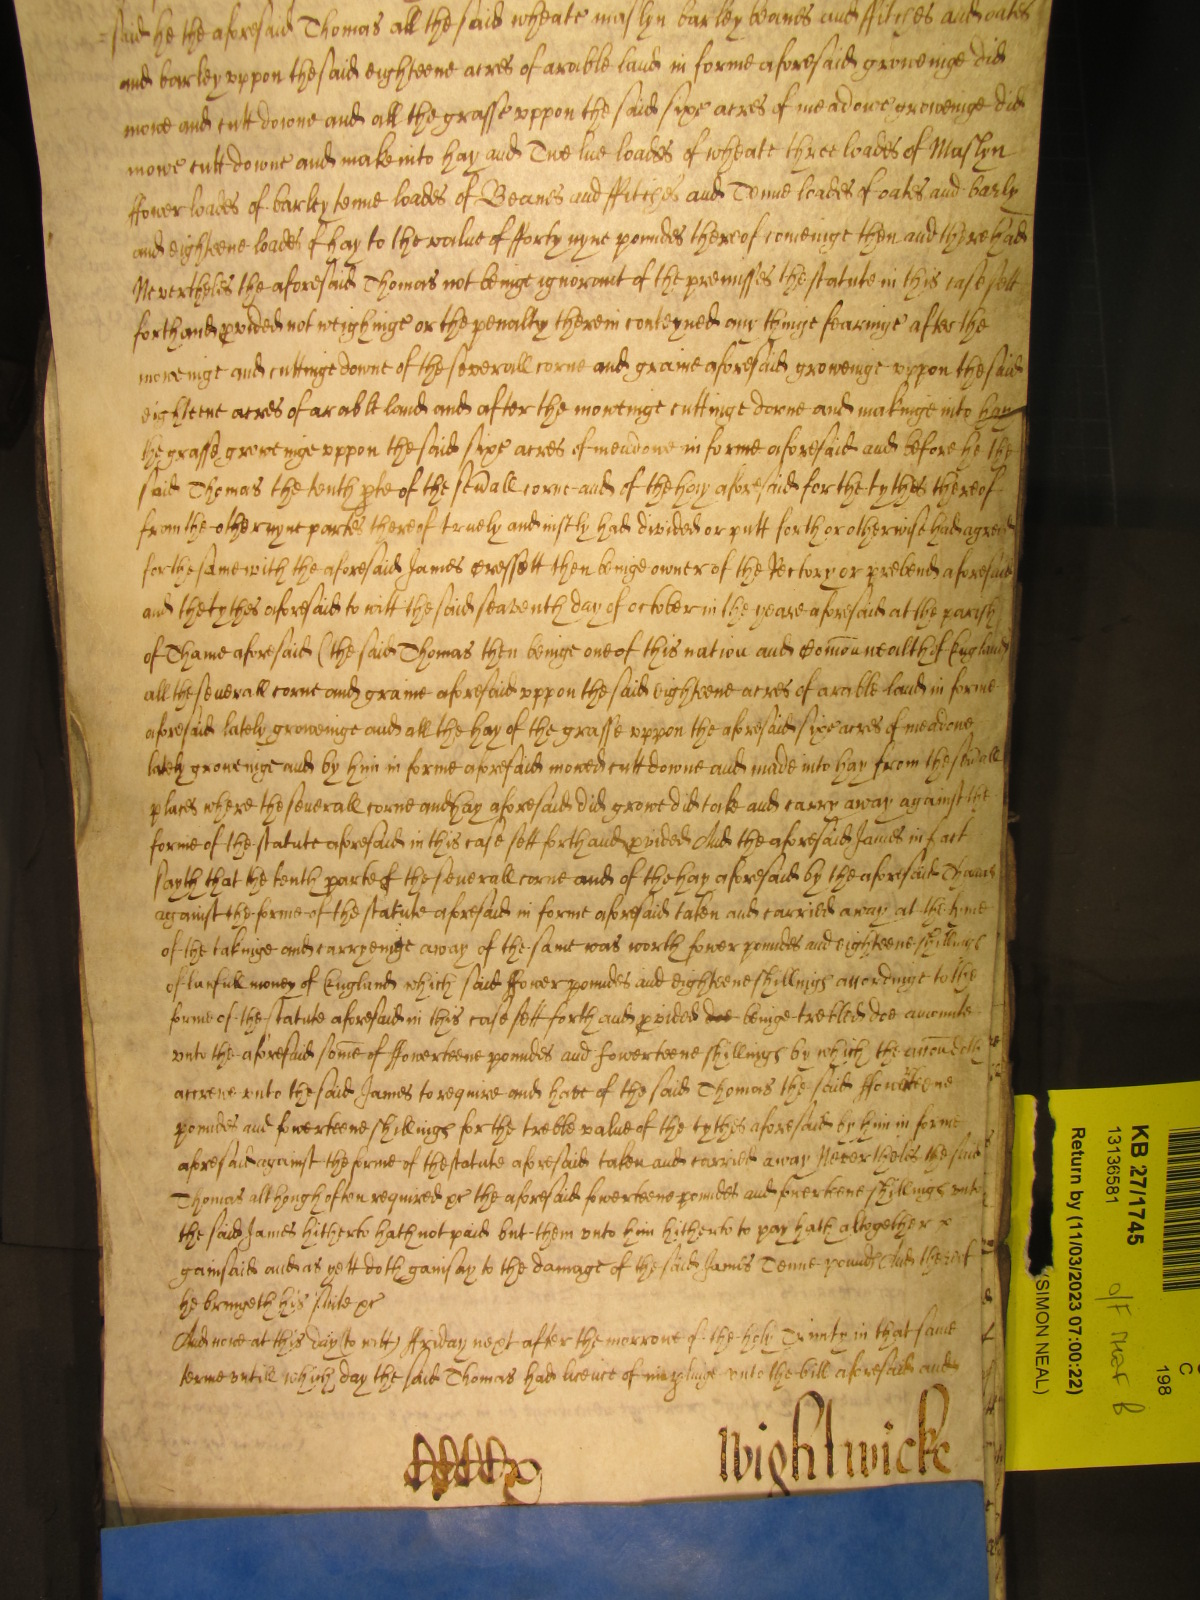 said he the aforesaid Thomas all the said wheate maslyn barley beanes and ffitches and oates
and barley vppon the said eighteene acres of arable land in forme aforesaid groweinge did
mowe and cutt downe and all the grasse vppon the said sixe acres of meadowe groweinge did
mowe cutt downe and make into hay and Twelue loades of wheate three loades of Maslyn
ffower loades of barley tenne loades of Beanes and ffitches and Tenne loades of oates and barly
and eighteene loades of hay to the value of fforty nyne poundes thereof comeinge then and there had
Nevertheles the aforesaid Thomas not beinge ignorant of the premisses the statute in this case sett
forth and pvided not weighinge or the penalty therein conteyned any thinge fearinge after the
moweinge and cuttinge downe of the severall corne and graine aforesaid groweinge vppon the said
eighteene acres of arable land and after the moweinge cuttinge downe and makinge into hay
the grasse groweinge vppon the said sixe acres of meadowe in forme aforesaid and before he the
said Thomas the tenth pte of the seuall corne and of the hay aforesaid for the tythes thereof
from the other nyne partes thereof truely and iustly had divided or putt forth or otherwise had agreed
for the same with the aforesaid James Cressett then beinge owner of the Rectory or prebend aforesaid
and the tythes aforesaid to witt the said seaventh day of october in the yeare aforesaid at the parish
of Thame aforesaid (the said Thomas then beinge one of this nation and Comonwealth of England
all the seuerall corne and graine aforesaid vppon the said eighteene acres of arable land in forme
aforesaid lately groweinge and all the hay of the grasse vppon the aforesaid sixe acres of meadowe
lately groweinge and by him in forme aforesaid mowed cutt downe and made into hay from the seuall
places where the seuerall corne and hay aforesaid did growe did take and carry away against the
forme of the statute aforesaid in this case sett forth and pvided And the aforesaid James in fact
sayth that the tenth parte of the seuerall corne and of the hay aforesaid by the aforesaid Thomas
against the forme of the statute aforesaid in forme aforesaid taken and carried away at the tyme
of the takinge and carryeinge away of the same was worth fower poundes and eighteene shillings
of lawfull money of England which said ffower poundes and eighteene shillings accordinge to the
forme of the statute aforesaid in this case sett forth and pvided beinge trebled doe amounte
vnto the aforesaid some of ffowerteene poundes and fowerteene shillings by which the
accrewe vnto the said James to require and have of the said Thomas the said ffowerteene
poundes and fowerteene shillings for the treble value of the tythes aforesaid by him in forme
aforesaid against the forme of the statute aforesaid taken and carried away Nevertheles the said
Thomas although often required &c the aforesaid fowerteene poundes and fowerteene shillings vnto
the said James hitherto hath not paid but them vnto him hitherto to pay hath altogether
gainsaid and as yett doth gainsay to the damage of the said James Tenne pounds And thereof
he bringeth his suite &c
And nowe at this day (to witt) ffryday next after the morrowe of the holy Trinity in that same
terme vntill which day the said Thomas had licence of imparlinge vnto the bill aforesaid and
Wightwicke
KB 27/1745
13136581
Return by (11/03/2023 07:00:22)
(SIMON NEAL)
C
198